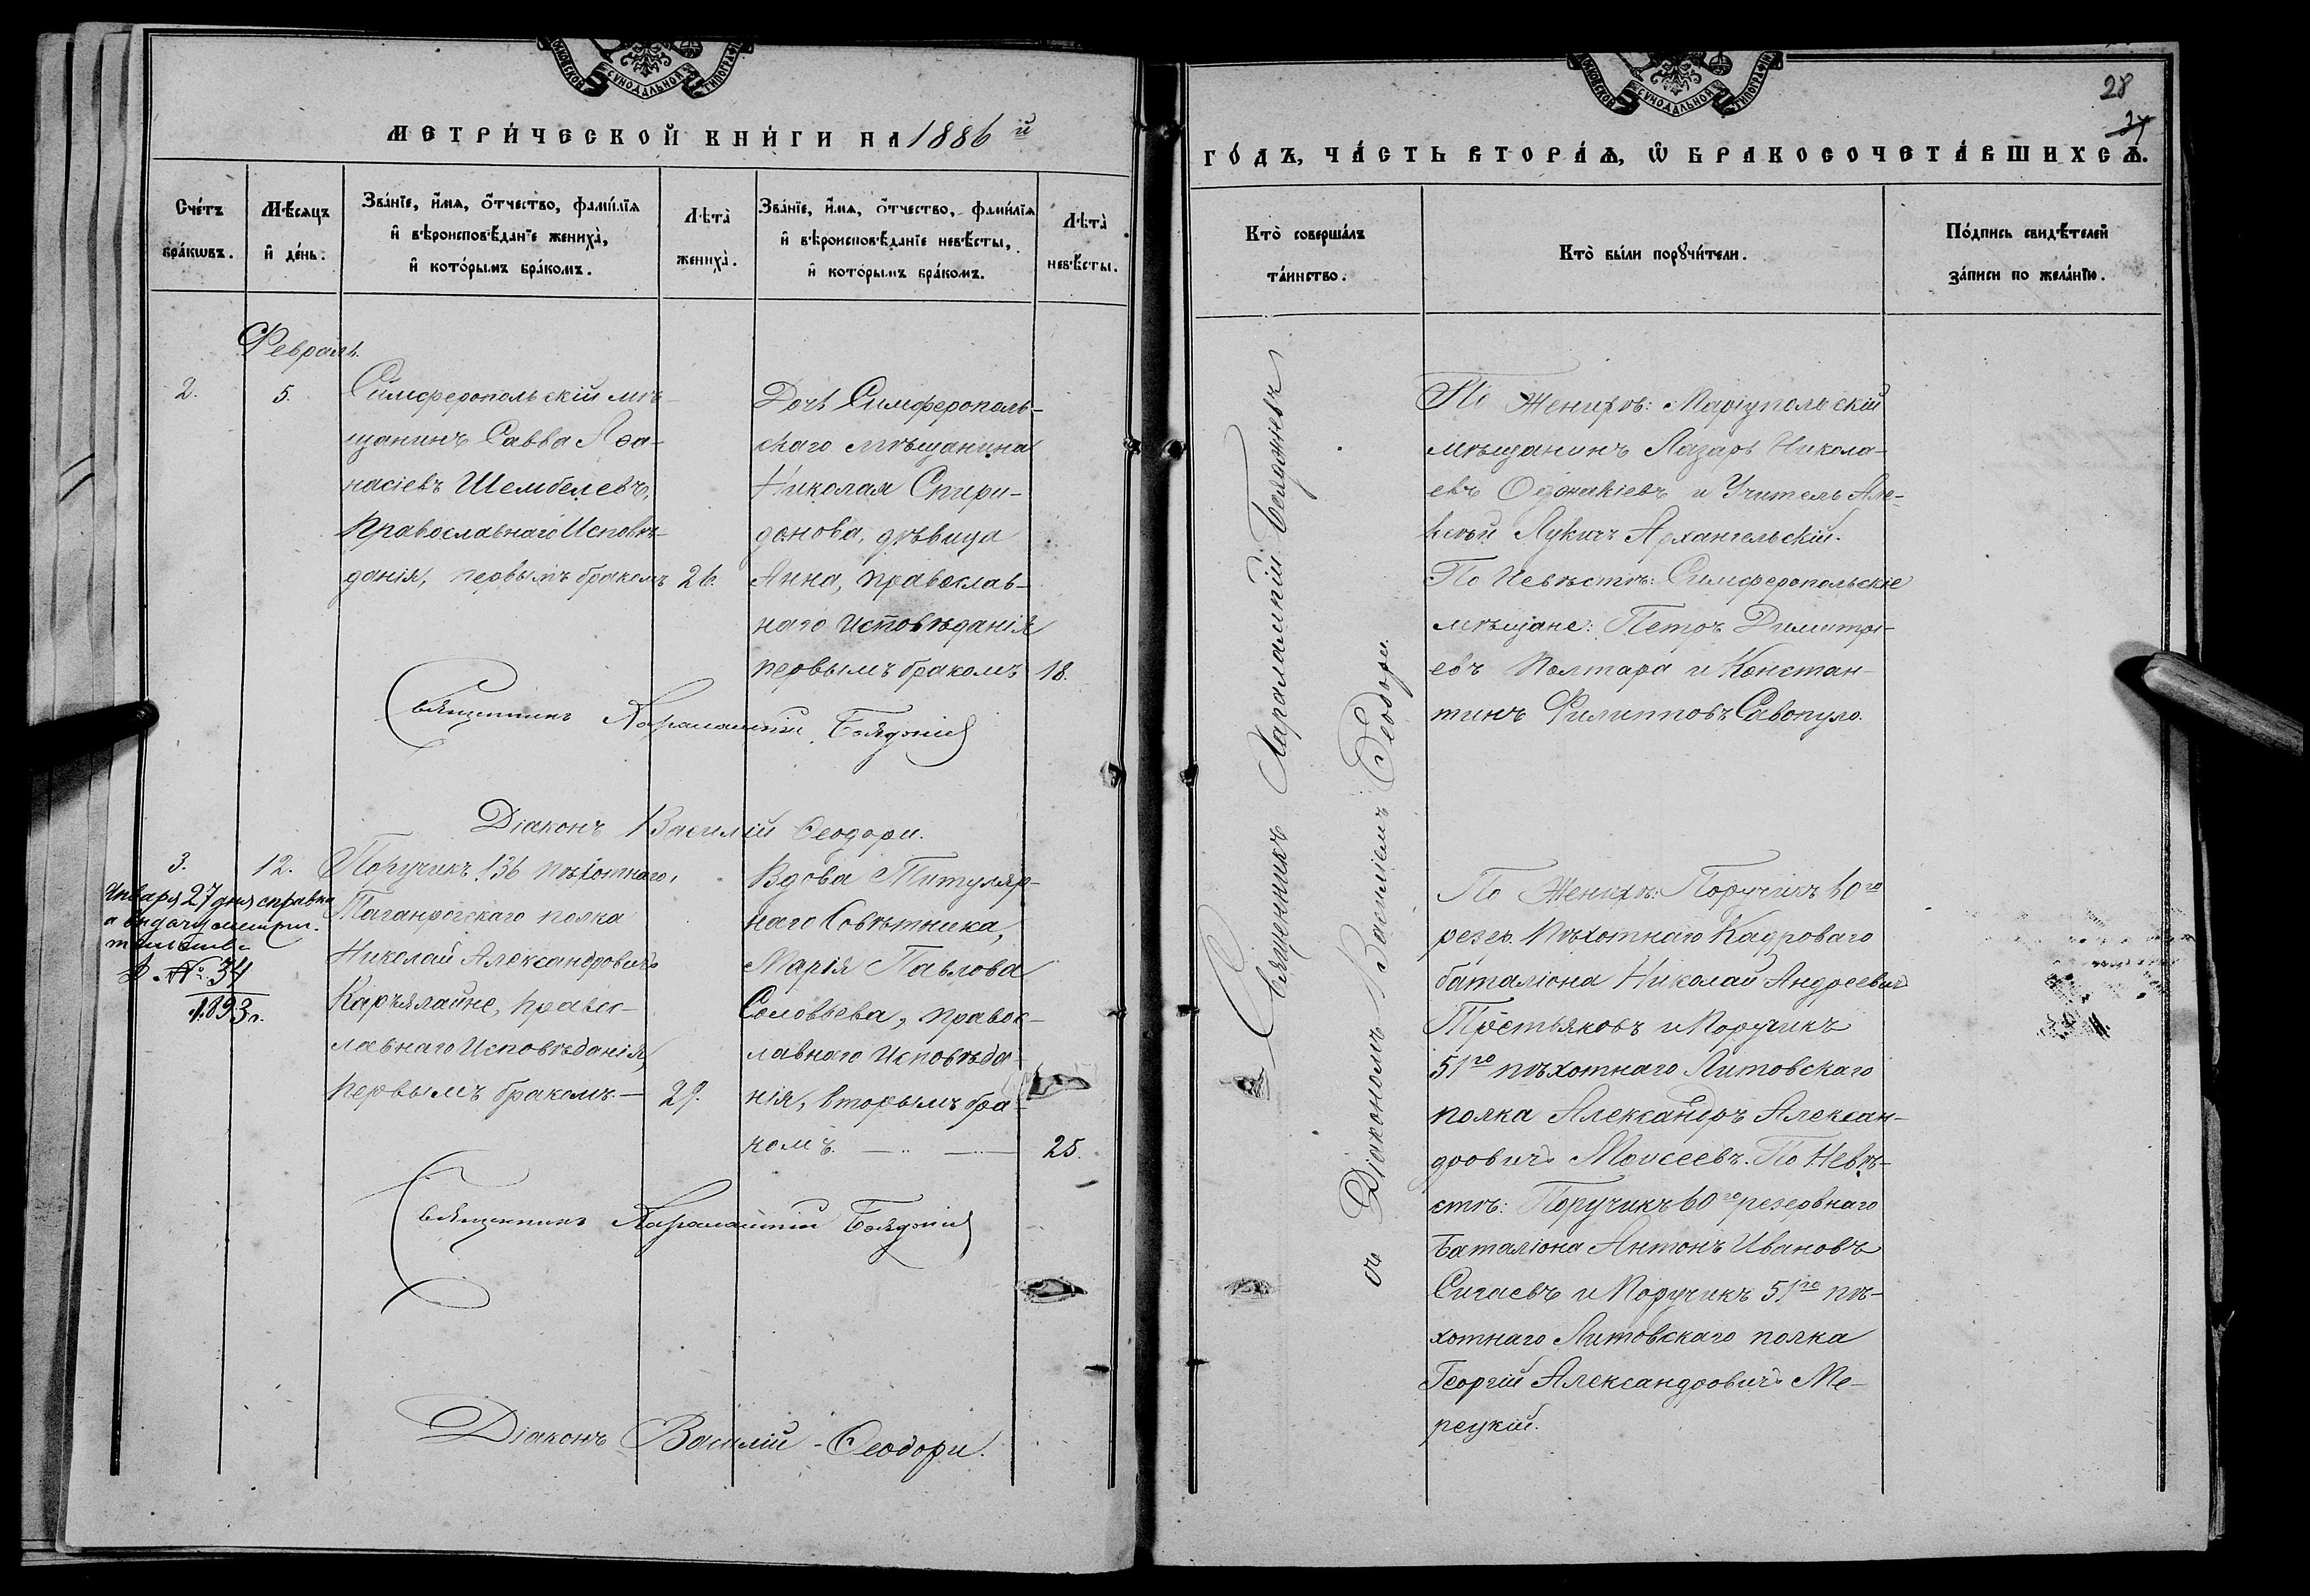 МОСКОВСКОЙ СѴНОДАЛЬНОЙ ТИПОГРАФІИ
МЕТРИ́ЧЕСКОЙ КНИ́ГИ НА 1886 й
Сче́тъ бра́кѡвъ.
Мѣ́сяцъ и҆ де́нь.
Зва́нїе, и҆́мѧ, ѻ҆́тчество, фамѝлїѧ и҆ вѣроисповѣ́данїе жениха̀, и҆ кото́рымъ бра́комъ.
Лѣта̀ жениха̀.
Зва́нїе, и҆́мѧ, ѻ҆́тчество, фамѝлїѧ и҆ вѣроисповѣ́данїе невѣ́сты, и҆ кото́рымъ бра́комъ.
Лѣта̀ невѣ́сты.
Февраль.
2.
5.
Симферопольскій мѣ-
щанинъ Савва Аѳа-
насіевъ Шембелевъ,
Православнаго Исповѣ-
данія, первымъ бракомъ
26.
Дочь Симферополь-
скаго мѣщанина
Николая Спири-
донова, дѣвица
Анна, православ-
наго исповѣданія
первымъ бракомъ
18.
Священникъ Харалампій
Діаконъ Василій Ѳеодори.
3.
12.
Января 27 дня справка
о выдачу метри.
№ 34
1893 г.
Поручикъ 136 пѣхотнаго,
Таганрогскаго полка
Николай Александровичъ
Карьялайне, правос-
лавнаго Исповѣданія,
первымъ бракомъ. —
29.
Вдова Титуляр-
наго Совѣтника,
Марія Павлова
Соловьева, правос-
лавнаго исповѣда-
нія, вторымъ бра-
комъ.
25.
Священникъ Харалампій
Діаконъ Василій Ѳеодори.
МОСКОВСКОЙ СѴНОДАЛЬНОЙ ТИПОГРАФІИ
28
27
ГО́ДЪ, ЧА́СТЬ ВТОРА́Ѧ, Ѡ҆ БРАКОСОЧЕТА́ВШИХСѦ.
Кто̀ соверша́лъ та́инство.
Кто̀ бы́ли порꙋчи́тели.
По́дпись свидѣ́телей за́писи по жела́нїю.
Священникъ Харалампій
съ Діакономъ Василіемъ Ѳеодори.
По Женихѣ: Маріупольскій
мѣщанинъ Лазарь Никола-
евъ и Учитель Але-
ксѣй Лукичъ Архангельскій.
По Невѣстѣ: Симферопольскіе
мѣщане: Петръ Димитрі-
евъ Полтара и Констан-
тинъ Филипповъ Савопуло.
По Женихѣ: Поручикъ 60го
резер. Пѣхотнаго Кадроваго
баталіона Николай Андреевичъ
Третьяковъ и Поручикъ
51го пѣхотнаго Литовскаго
полка Александръ Алексан-
дровичъ Моисеевъ. По Невѣ-
стѣ: Поручикъ 60го резервнаго
Баталіона Антонъ Ивановъ
Сигаевъ и Поручикъ 51го пѣ-
хотнаго Литовскаго полка
Георгій Александровичъ Ме-
рецкій.